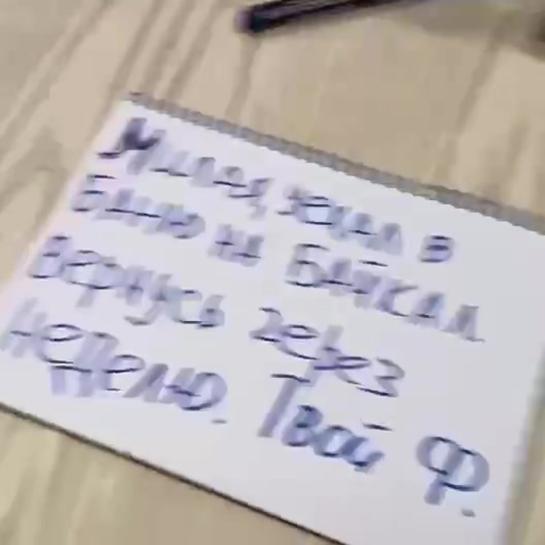 Милая, уехал в
Баню на БАЙКАЛ
вернусь через
неделю. Твой Ф.